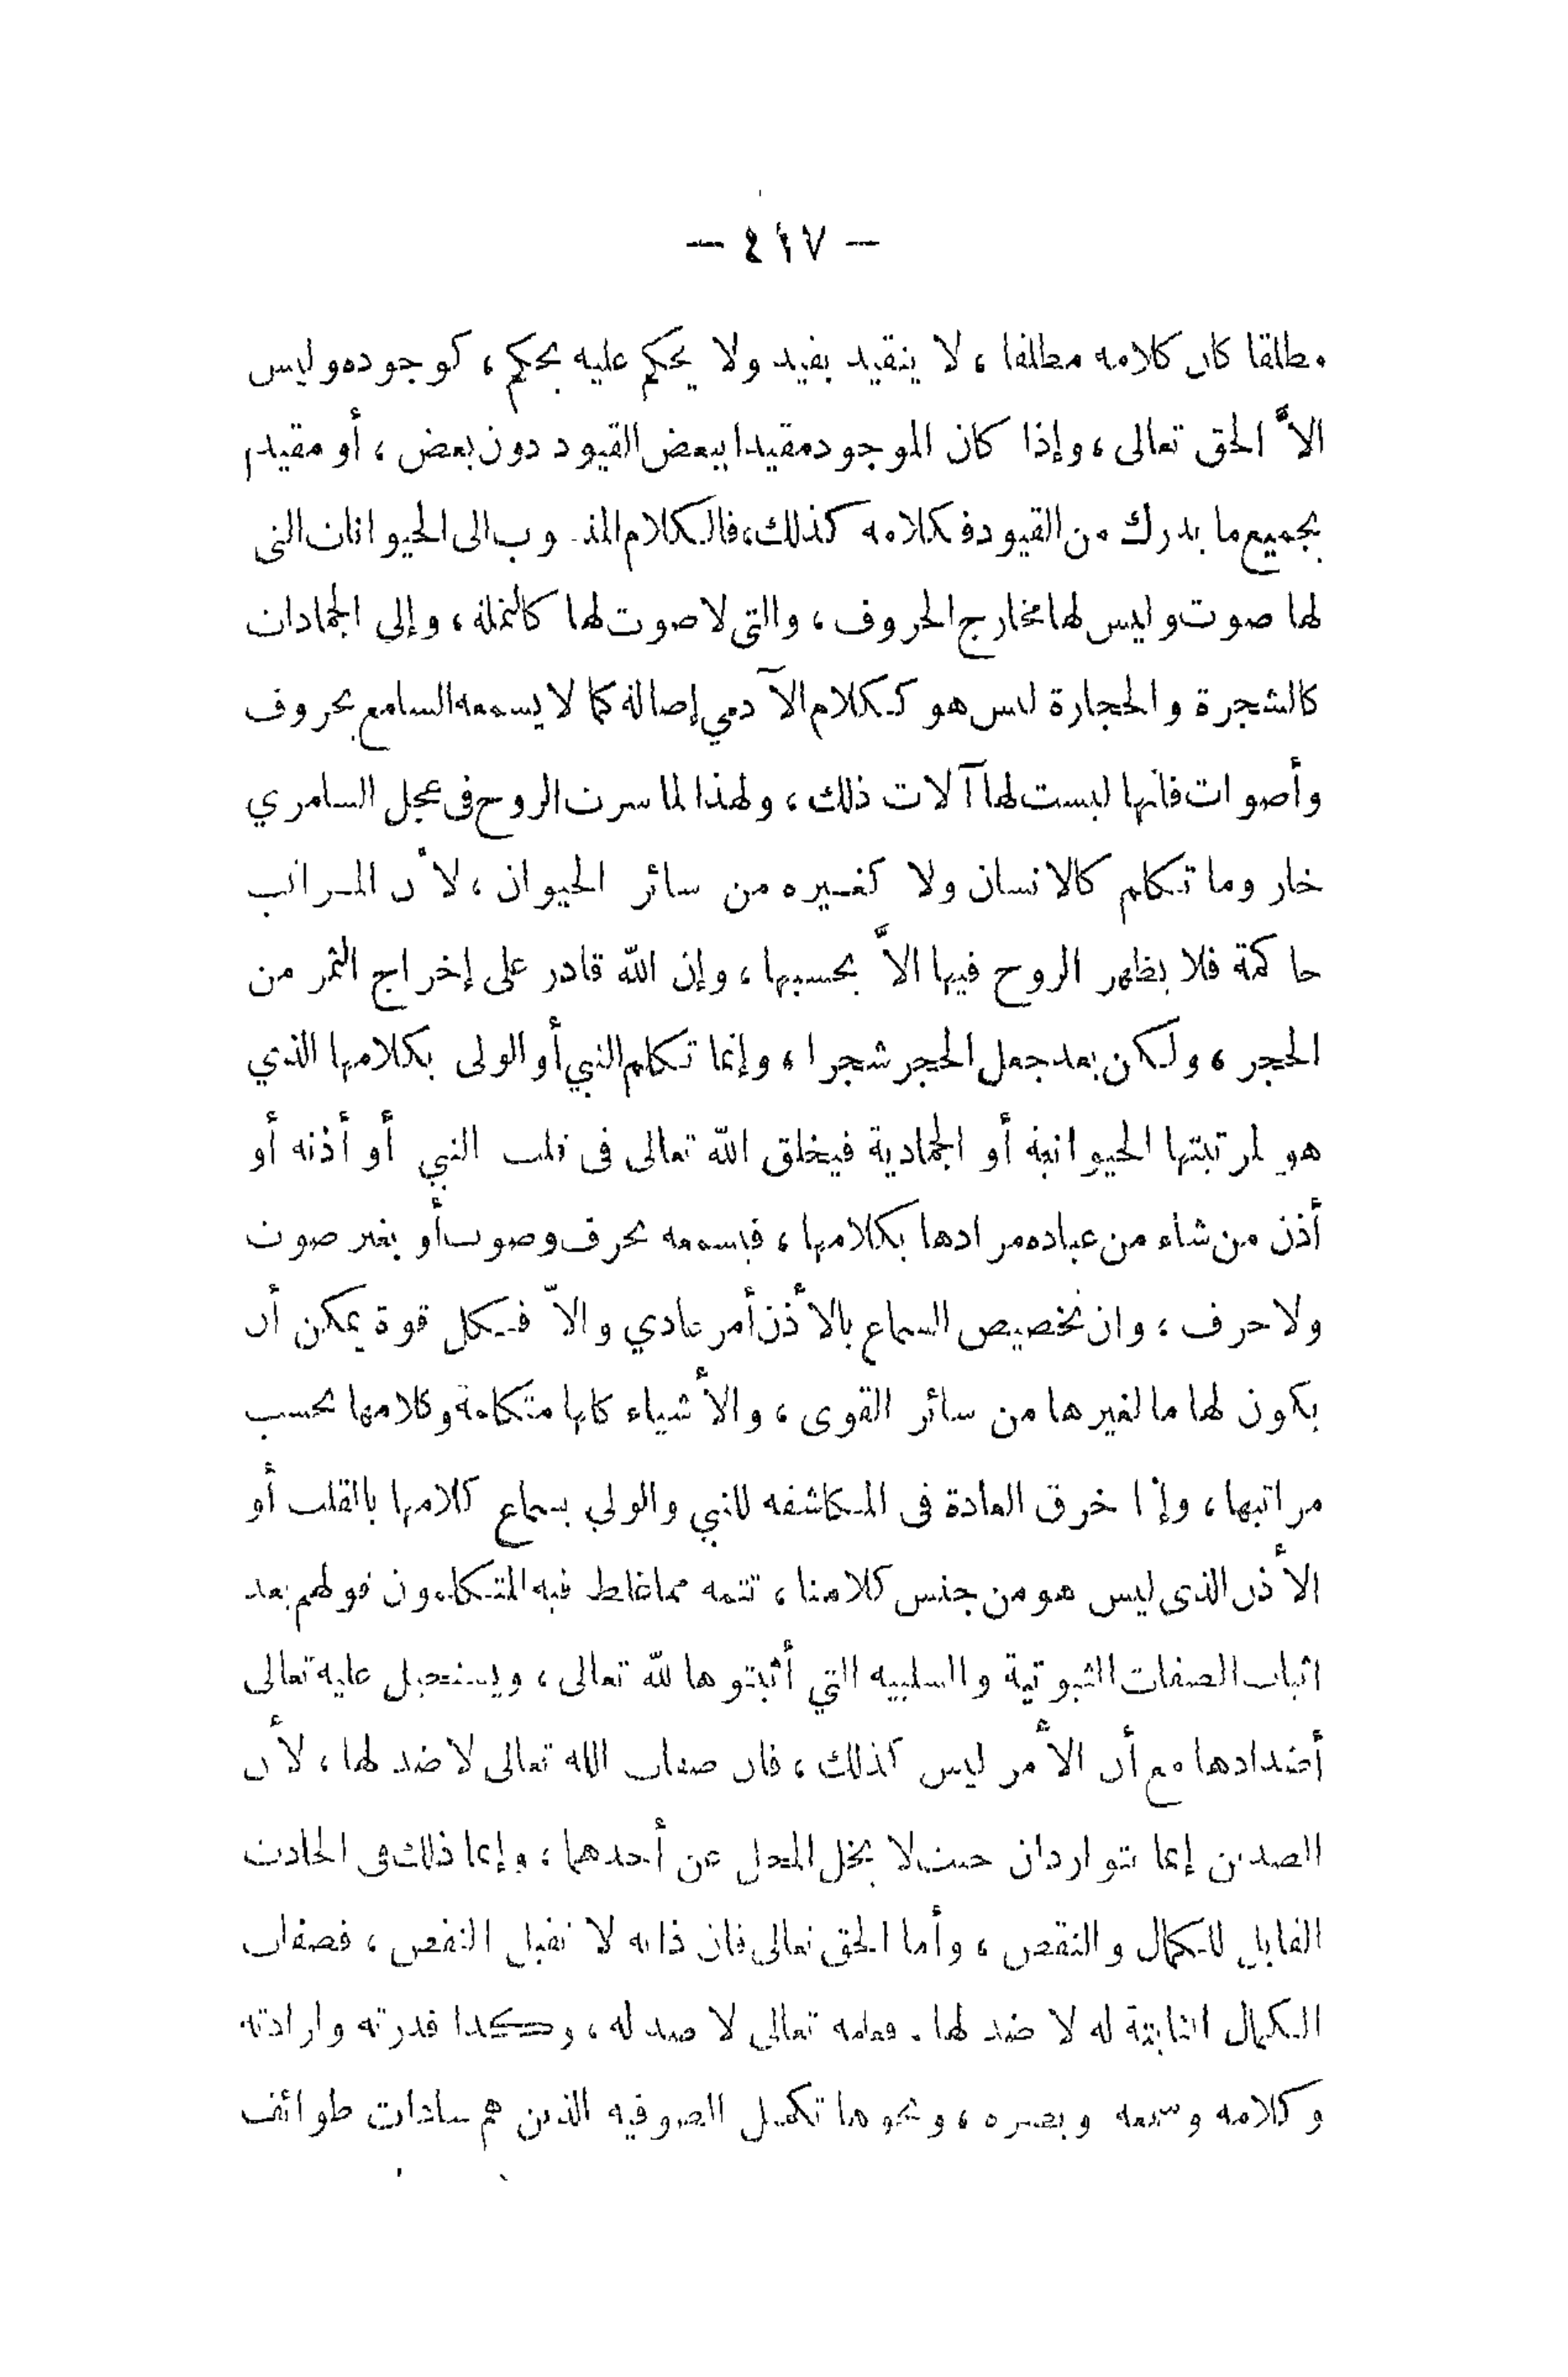 — ٤١٧ —
مطلقا كان كلامه مطلقا ، لا يتقيد بقيد ولا يحكم عليه بحكم ، كوجوده وليس
الاَّ الحق تعالى ، وإذا كان الموجود مقيدا ببعض القيود دون بعض ، أو مقيدا
بجميع ما يدرك من القيود فكلامه كذلك ، فالكلام المنسوب الى الحيوانات التي
لها صوت وليس لها مخارج الحروف ، والتى لا صوت لها كالنملة ، وإلى الجمادات
كالشجرة والحجارة ليس هو ككلام الآدمي إصالة كما لا يسمعه السامع بحروف
وأصوات فانها ليست لها آلات ذلك ، ولهذا لما سرت الروح فى عجل السامري
خار وما تكلم كالانسان ولا كغيره من سائر الحيوان ، لأن المراتب
حاكمة فلا يظهر الروح فيها الاَّ بحسبها ، وإن الله قادر على إخراج الثمر من
الحجر ، ولكن بعد جعل الحجر شجرا ، وإنما تكلم النبي أو الولى بكلامها الذي
هو لمرتبتها الحيوانية أو الجمادية فيخلق الله تعالى فى قلب النبي أو أذنه أو
أذن من شاء من عباده مرادها بكلامها ، فيسمعه بحرف وصوت أو بغير صوت
ولا حرف ، وان تخصيص السماع بالأذن أمر عادي والاّ فكل قوة يمكن أن
يكون لها ما لغيرها من سائر القوى ، والأشياء كلها متكلمة وكلامها بحسب
مراتبها ، وإنما خرق العادة فى المكاشفه للنبي والولي بسماع كلامها بالقلب أو
الأذن الذى ليس هو من جنس كلامنا ، تتمه مما غلط فيه المتكلمون قولهم بعد
اثبات الصفات الثبوتية والسلبيه التي أثبتوها لله تعالى ، ويستحيل عليه تعالى
أضدادها مع أن الأمر ليس كذلك ، فان صفات الله تعالى لا ضد لها ، لأن
الضدين إنما يتواردان حيث لا يخل المحل عن أحدهما ، وإنما ذلك فى الحادث
القابل للكمال والنقص ، وأما الحق تعالى فان ذاته لا تقبل النقص ، فصفات
الكمال الثابتة له لا ضد لها . فعلمه تعالى لا ضد له ، وهكذا قدرته وارادته
وكلامه وسمعه وبصره ، ونحوها تكميل الصوفيه الذين هم سادات طوائف